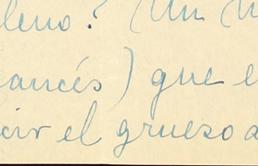 leno? (Un M
ancés) que e
cir el grueso a